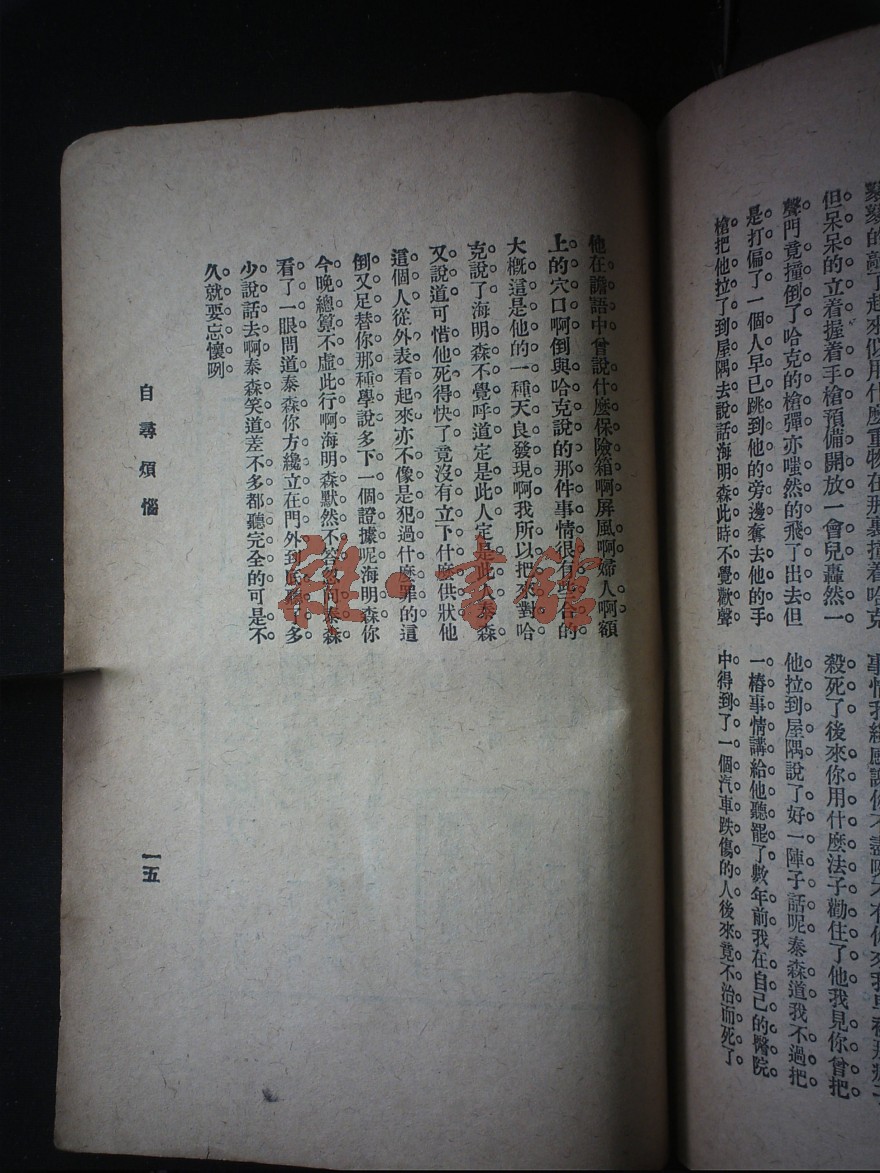 的敲了起來似用什麼重物在那裏撞着哈克
但呆呆的立着握着手槍預備開放一會兒轟然一
聲門竟撞倒了哈克的槍彈亦嗤然的飛了出去但
是打偏了一個人早已跳到他的旁邊奪去他的手
槍把他拉了到屋隅去說話海明森此時不覺歡聲
事情我
殺死了後來你用什麼法子勸住了他我見你曾把
他拉到屋隅說了好一陣子話呢泰森道我不過把
一樁事情講給他聽罷了數年前我在自己的醫院
中得到了一個汽車跌傷的人後來竟不治而死了
他在譫語中曾說什麼保險箱啊屏風啊婦人啊額
上的穴口啊倒與哈克說的那件事情很有些合的
大概這是他的一種天良發現啊我所以把來對哈
克說了海明森不覺呼道定是此人定是此人泰森
又說道可惜他死得快了竟沒有立下什麼供狀他
這個人從外表看起來亦不像是犯過什麼罪的這
倒又足替你那種學說多下一個證據呢海明森你
今晚總算不虛此行啊海明森默然不答忽向泰森
看了一眼問道泰森你方纔立在門外到底聽了多
少說話去啊泰森笑道差不多都聽完全的可是不
久就要忘懷咧
自尋煩惱
一五
雜·書館